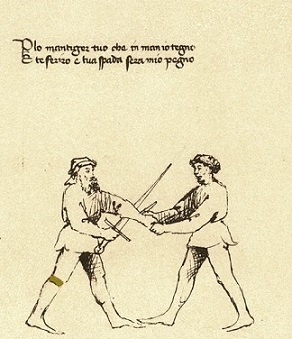 Plo mantiger tuo che in man io tegno
E te feriro e tua spada sera mio pegno